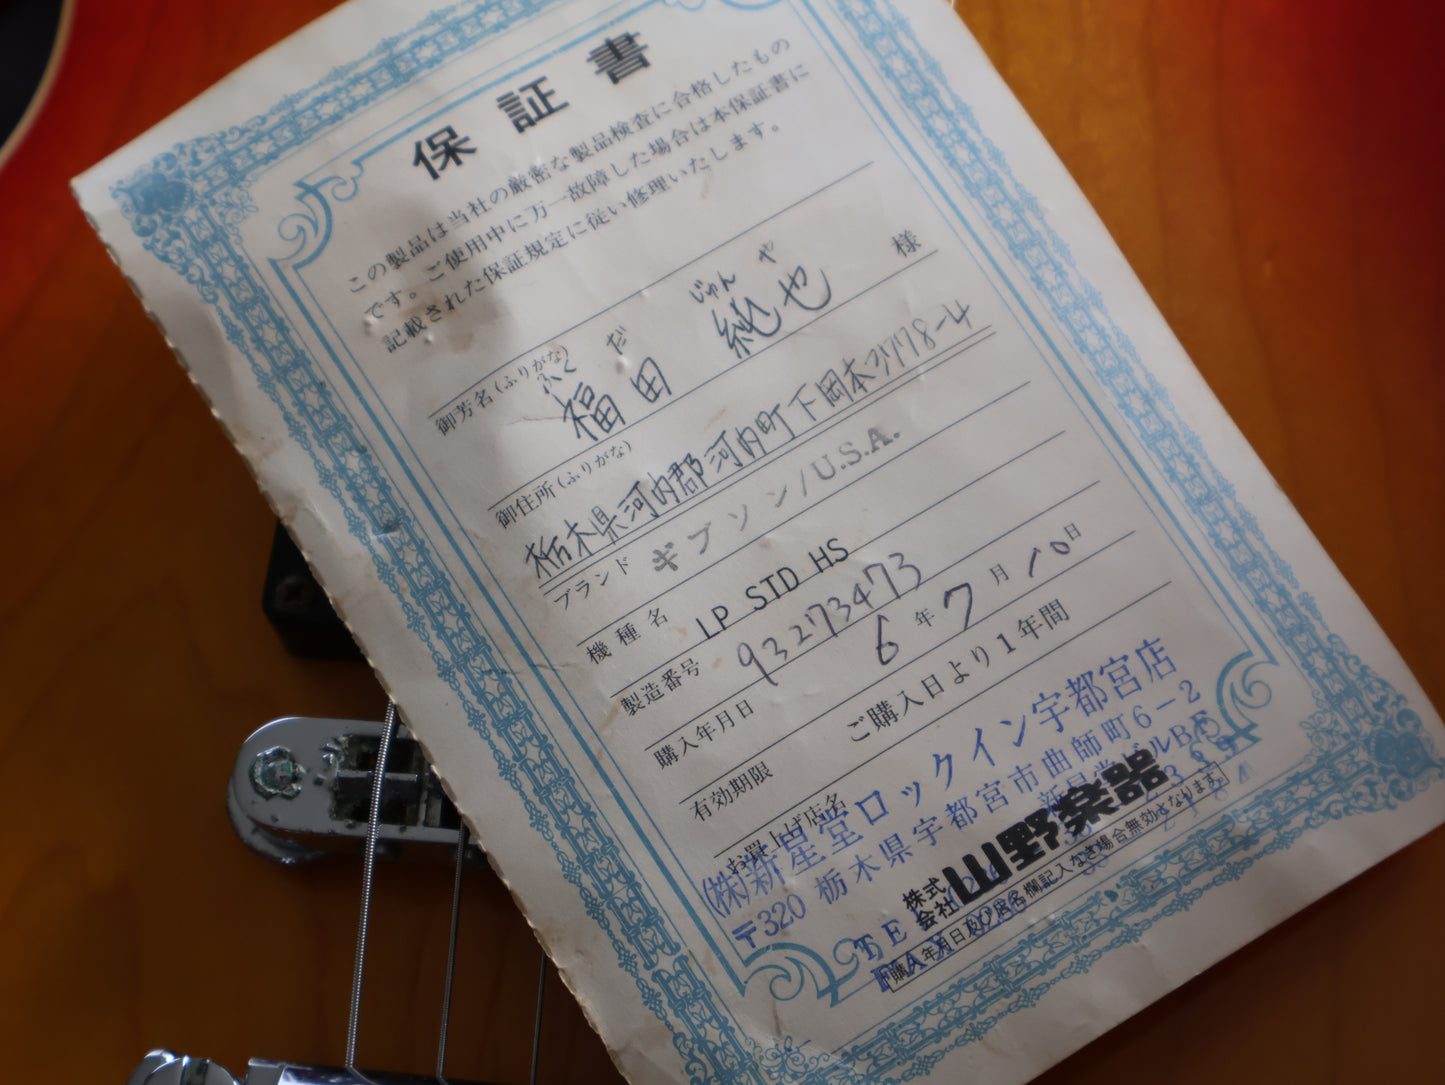 保証書
この製品は当社の厳密な製品検査に合格したもの
です。ご使用中に万一故障した場合は本保証書に
記載された保証規定に従い修理いたします。
御芳名(ふりがな)
ふくだ じゅんや
福田 純也 様
御住所(ふりがな)
栃木県河内郡河内町下岡本3778-4
ブランド ギブソン/U.S.A.
機種名 LP STD HS
製造番号 93273473
購入年月日 6年7月10日
有効期限 ご購入日より1年間
お買上げ店名
㈱新星堂ロックイン宇都宮店
〒320 栃木県宇都宮市曲師町6-2
TEL
株式会社山野楽器
購入年月日及び店名欄記入なき場合無効となります